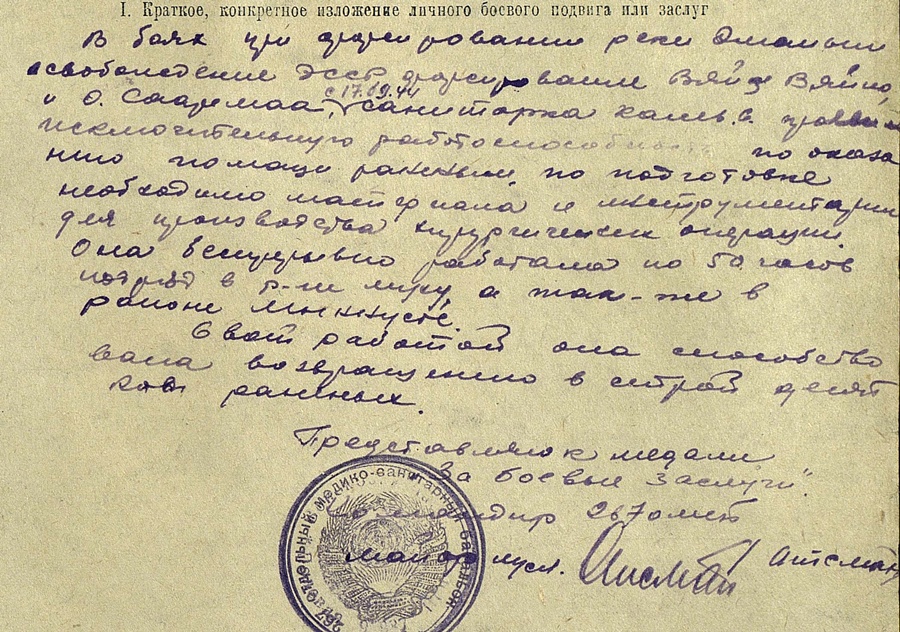 I. Краткое, конкретное изложение личного боевого подвига или заслуг
В боях при форсировании реки Эмайыги
освобождение ЭССР форсировании Вяйке Вяйно,
с 17.09.44
и о. Сааремаа, санитарка кап. в.
исключительную работоспособность по оказа
нию помощи раненым, по подготовке
необходимо материала и инструментария
для производства хирургическ операции.
Она беспрерывно работала по 50 часов
подряд в р-не а так-же в
районе
Своей работой она способство
вала возвращению в строй десят
ков раненых.
Представляю к медали
"За боевые заслуги".
Командир 267 омсб
майор м/сл. Атсман
Отдельный медико-санитарный батальон
267